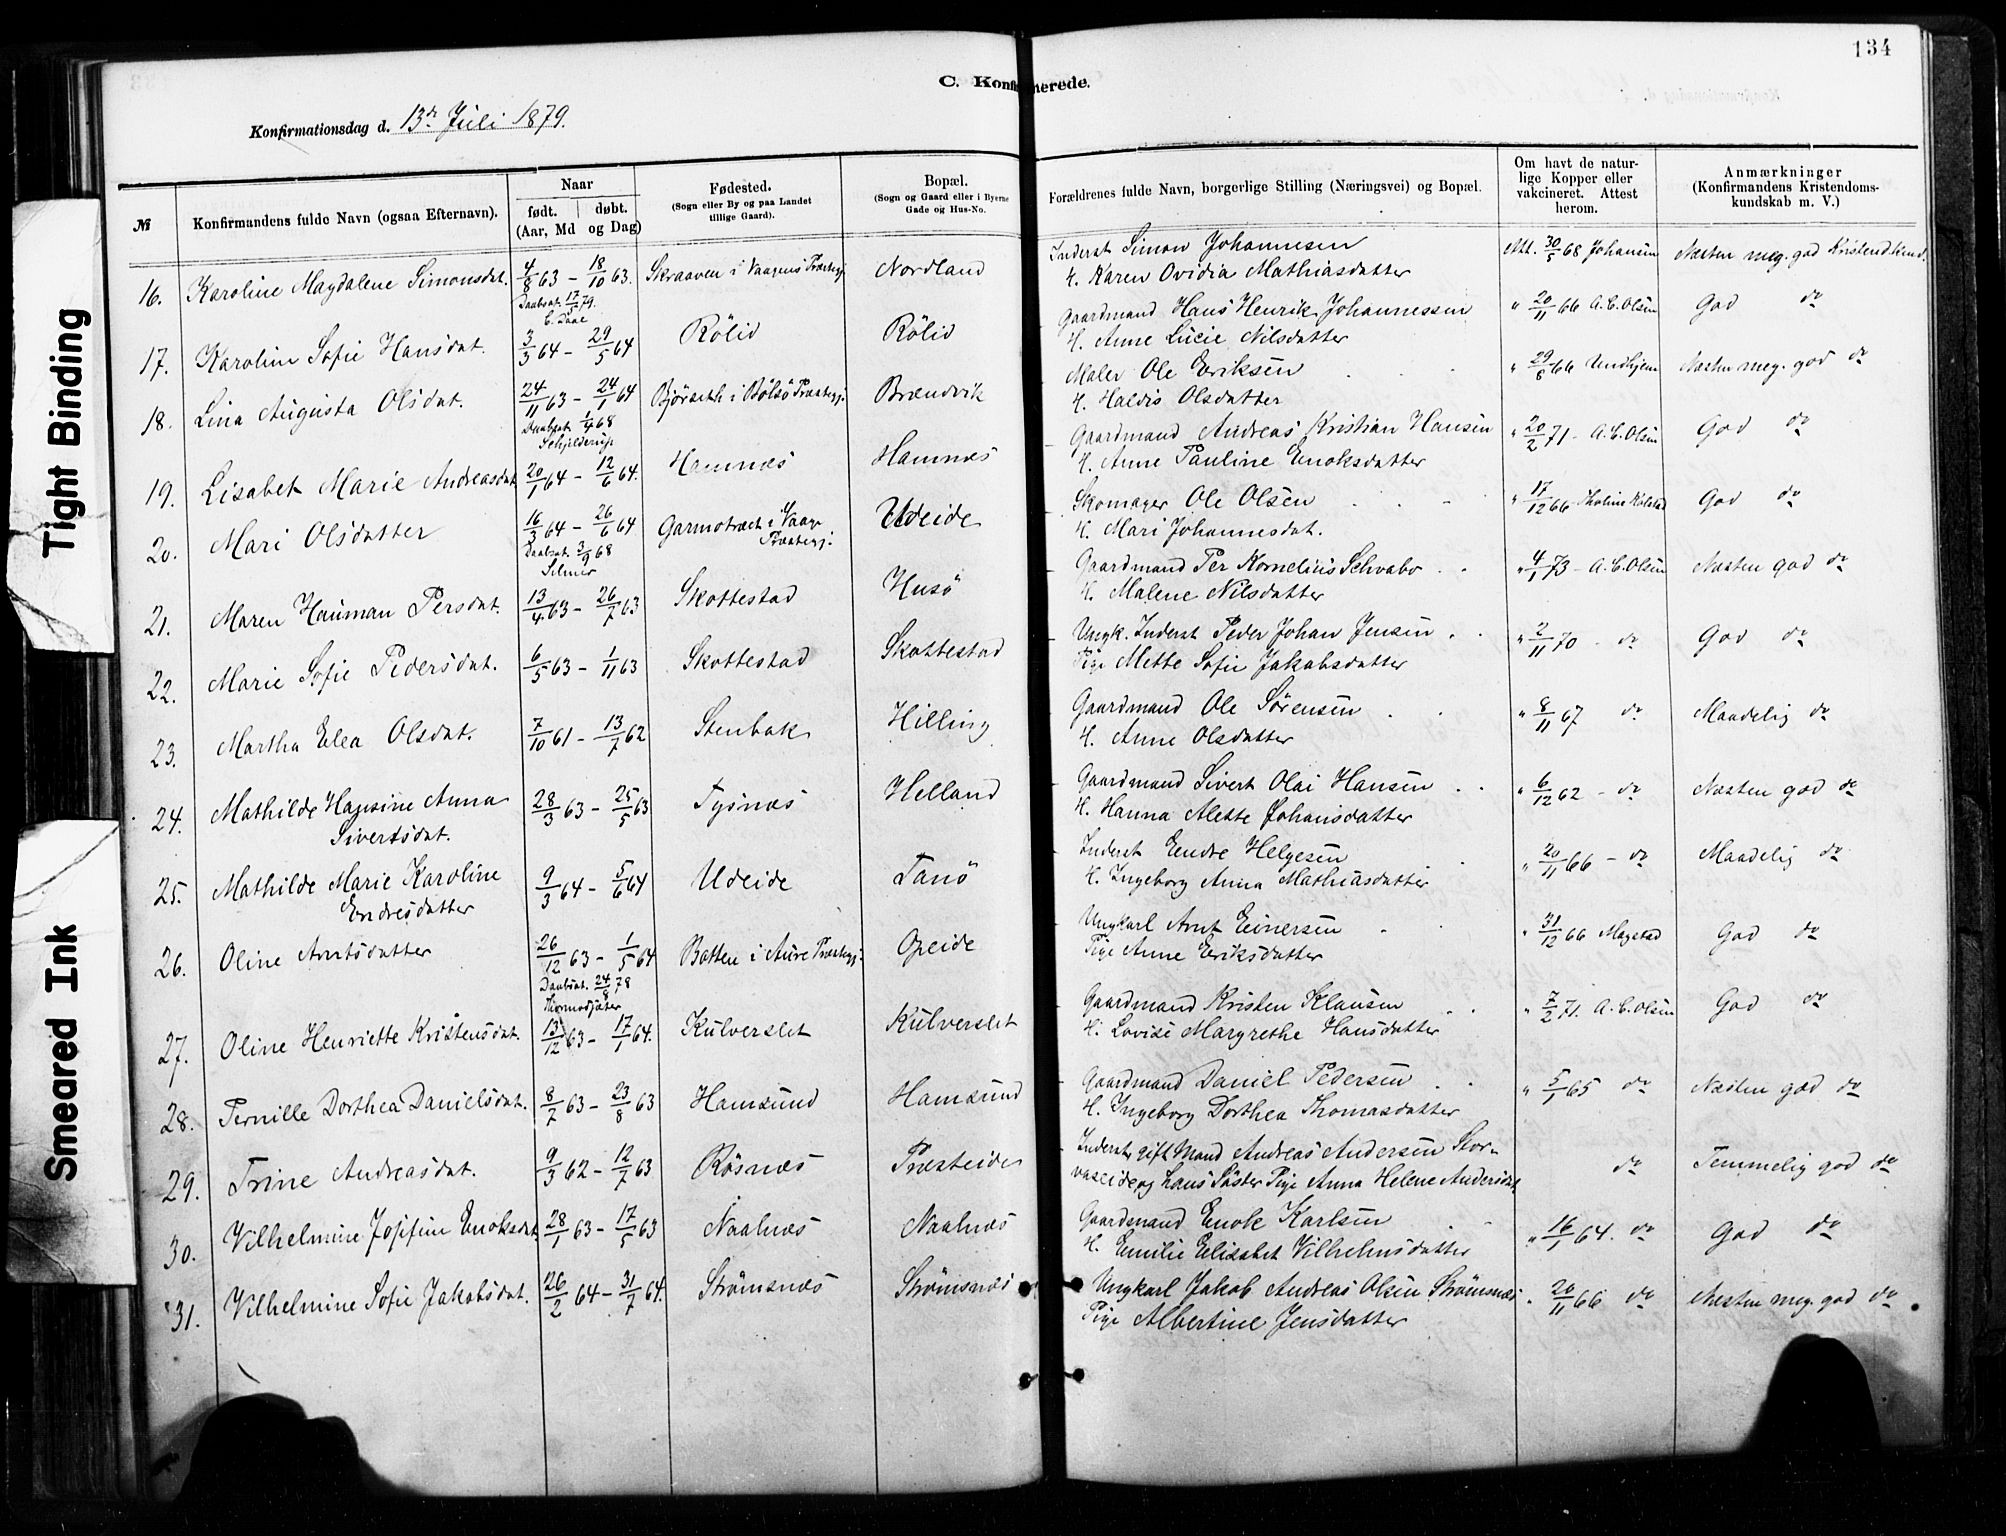 134
C. Konfirmerede.
Konfirmationsdag d. 13de Juli 1879.
№
Konfirmandens fulde Navn (ogsaa Efternavn).
Naar
født. | døbt.
(Aar, Md og Dag)
Fødested.
(Sogn eller By og paa Landet
tillige Gaard).
Bopæl.
(Sogn og Gaard eller i Byerne
Gade og Hus-No.
Forældrenes fulde Navn, borgerlige Stilling (Næringsvei) og Bopæl.
Om havt de natur-
lige Kopper eller
vakcineret. Attest
herom.
Anmærkninger
(Konfirmandens Kristendoms-
kundskab m. V.)
16. Karoline Magdalene Simonsdat. 4/8 63 – 18/10 63. Skraaven i Vaagens Præstegj. Nordland Inderst Simon Johannesen Att. 30/5 68 Johansen Næsten meg. god Kristend.kund.
Daabsat. 17/5 79. H. Karen Ovidia Mathiasdatter
C. Daae
17. Karoline Sofie Hansdat. 3/3 64 – 29/5 64 Rölid Rölid Gaardmand Hans Henrik Johannessen " 20/11 66 A. C. Olsen God do
H. Anne Lucie Nilsdatter
18. Lina Augusta Olsdat. 24/11 63 – 24/1 64 Bjørseth i Bolsö Præstegj. Brændvik Maler Ole Eriksen " 29/8 66 Undhjem Næsten meg. god do
Daabsat. 1/4 68 H. Haldis Olsdatter
Schjelderup
19. Lisabet Marie Andreasdat 20/1 64 – 12/6 64. Hamnæs Hamnæs Gaardmand Andreas Kristian Hansen " 20/2 71 – A. C. Olsen God do
H. Anne Pauline Enoksdatter
20. Mari Olsdatter 16/3 64 – 26/6 64 Garmotræet i Vaage Præstegj. Udeide Skomager Ole Olsen " 17/12 66 – Tholine Kolstad God do
Daabsat. 3/9 68 H. Mari Johannesdat.
Selmer
21. Maren Hauman Persdat. 13/4 63 – 26/7 63 Skottestad Husö Gaardmand Per Kornelius Schvabo " 4/1 73 – A. C. Olsen Næsten god do
H. Malene Nilsdatter
22. Marie Sofie Pedersdat. 6/5 63 – 1/11 63 Skottestad Skottestad Ungk. Inderst Peder Johan Jensen " 2/11 70 – do God do
Pige Mette Sofie Jakobsdatter
23. Martha Elea Olsdat. 7/10 61 – 13/7 62 Stenbak Hilling Gaardmand Ole Sørensen " 8/11 67 do Maadelig do
H. Anne Olsdatter
24. Mathilde Hansine Anna 28/3 63 – 25/5 63 Tysnæs Helland Gaardmand Sivert Olai Hansen " 6/12 62 – do Næsten god do
Sivertsdat. H. Hanna Alette Johansdatter
25. Mathilde Marie Karoline 9/3 64 – 5/6 64 Udeide Tanö Inderst Endre Helgesen " 20/11 66 – do Maadelig do
Endresdatter H. Ingeborg Anna Mathiasdatter
26. Oline Arntsdatter 26/12 63 – 1/5 64 Botten i Aure Præstegj. Opeide Ungkarl Arnt Einersen " 31/12 66 Magstad God do
Daabsat. 24/8 78 Pige Anne Eriksdatter
27. Oline Henriette Kristensdat. 13/12 63 – 17/1 64. Kulverslet Kulverslet Gaardmand Kristen Klausen " 7/2 71. A. C. Olsen God do
H. Lovise Margrethe Hansdatter
28. Pernille Dorthea Danielsdat. 8/7 63 – 23/8 63 Hamsund Hamsund Gaardmand Daniel Pedersen " 5/1 65 do Næsten god do
H. Ingeborg Dorthea Thomasdatter
29. Trine Andreasdat. 9/3 62 – 12/7 63 Rösnæs Præsteide Inderst, gift Mand Andreas Andersen Stor- do Temmelig god do
vaseide og hans Söster Pige Anna Helene Andersdat.
30. Vilhelmine Josefine Enoksdat 28/1 63 – 17/5 63 Naalnæs Naalnæs Gaardmand Enok Karlsen " 16/1 64. do God do
H. Emilie Elisabet Vilhelmsdatter
31. Vilhelmine Sofie Jakobsdat. 26/2 64 – 31/7 64. Strømsnæs Strømsnæs Ungkarl Jakob Andreas Olsen Strømsnæs " 20/11 66 do Næsten meg. god do
Pige Albertine Jensdatter
Tight Binding
Smeared Ink